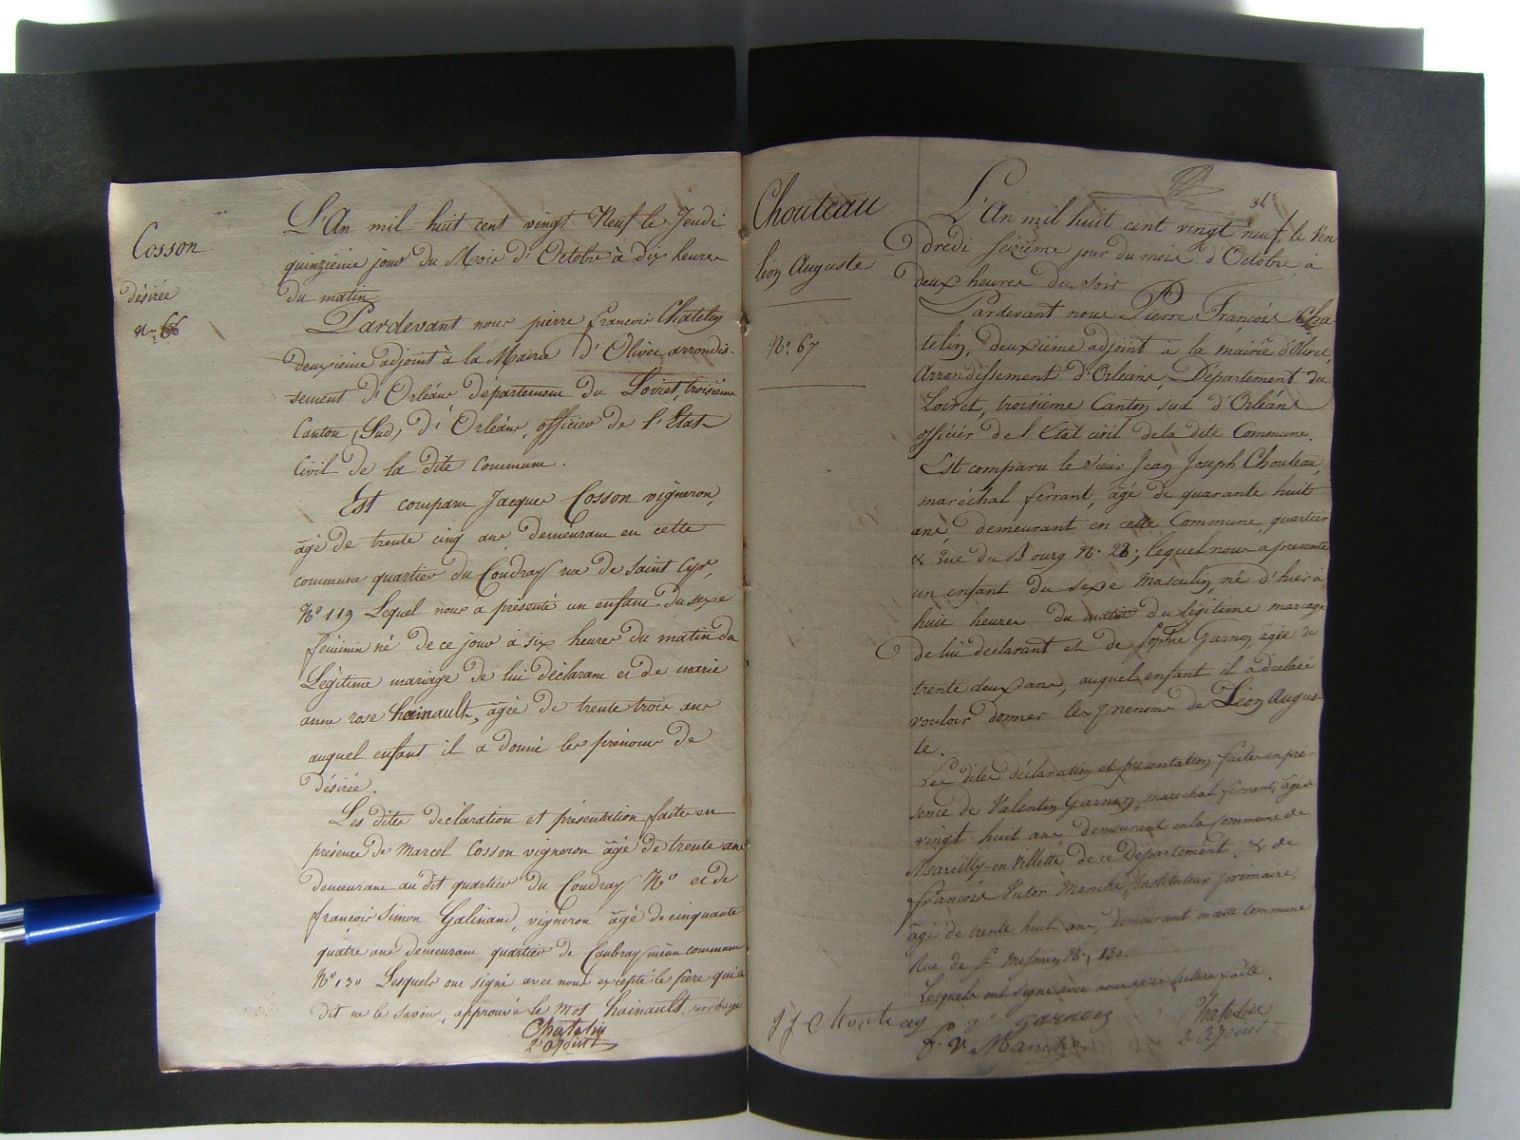 Cosson
désirée
N° 66
L'An mil huit cent vingt Neuf le Jeudi
quinzieme jour du Mois d'Octobre à dix heures
du matin
Pardevant nous pierre françois Chatelin
deuxieme adjoint à la Mairie d'Olivet arrondis-
sement d'Orléans département du Loiret, troisieme
Canton, Sud, d'Orléans, officier de l'Etat
Civil de la dite commune.
Est comparu Jacques Cosson vigneron,
âgé de trente cinq ans demeurant en cette
commune quartier du Coudray rue de Saint Cyr,
N° 119 Lequel nous a présenté un enfant du sexe
féminin né de ce jour à six heures du matin du
Légitime mariage de lui déclarant et de marie
anne rose hainault, âgée de trente trois ans
auquel enfant il a donné les prénoms de
désirée.
Les dites déclaration et présentation faite en
présence de Marcel Cosson vigneron âgé de trente ans
demeurant au dit quartier du Coudray N° et de
françois Simon Galinand, vigneron âgé de cinquante
quatre ans demeurant quartier de Coubray même commune
N° 130 Lesquels ont signé avec nous excepté le père qui a
dit ne le savoir, approuvé le mot hainault surchargé
Chatelin
2e adjoint
34
Chouteau
léon Auguste
N° 67
L'An mil huit cent vingt neuf, le Ven
dredi seizième jour du mois d'Octobre à
deux heures du soir
Pardevant nous Pierre François Cha
telin, deuxième adjoint à la mairie d'Olivet,
Arrondissement d'Orléans, Département du
Loiret, troisième Canton sud d'Orléans
officier de l'Etat civil de la dite Commune.
Est comparu le sieur Jean Joseph Chouteau,
maréchal ferrant, âgé de quarante huit
ans demeurant en cette Commune, quartier
& rue du Bourg N° 28; lequel nous a présenté
un enfant du sexe masculin, né d'hier à
huit heures du matin du légitime mariage
de lui déclarant et de Sophie Garnon, âgée de
trente deux ans, auquel enfant il a déclaré
vouloir donner les prénoms de Léon Augus
te.
Les dites déclaration et présentation faites en pré
sence de Valentin Garnon, maréchal ferrant, âgé de
vingt huit ans demeurant en la Commune de
Marcilly-en Villette de ce Département. & de
françois Victor Manche, Instituteur primaire,
âgé de trente huit ans, demeurant en cette Commune
Rue de St Mesmin N° 130.
Lesquels ont signé avec nous après lecture faite.
J J Chouteau
V garnon
Chatelin
f. V Manche
2e adjoint